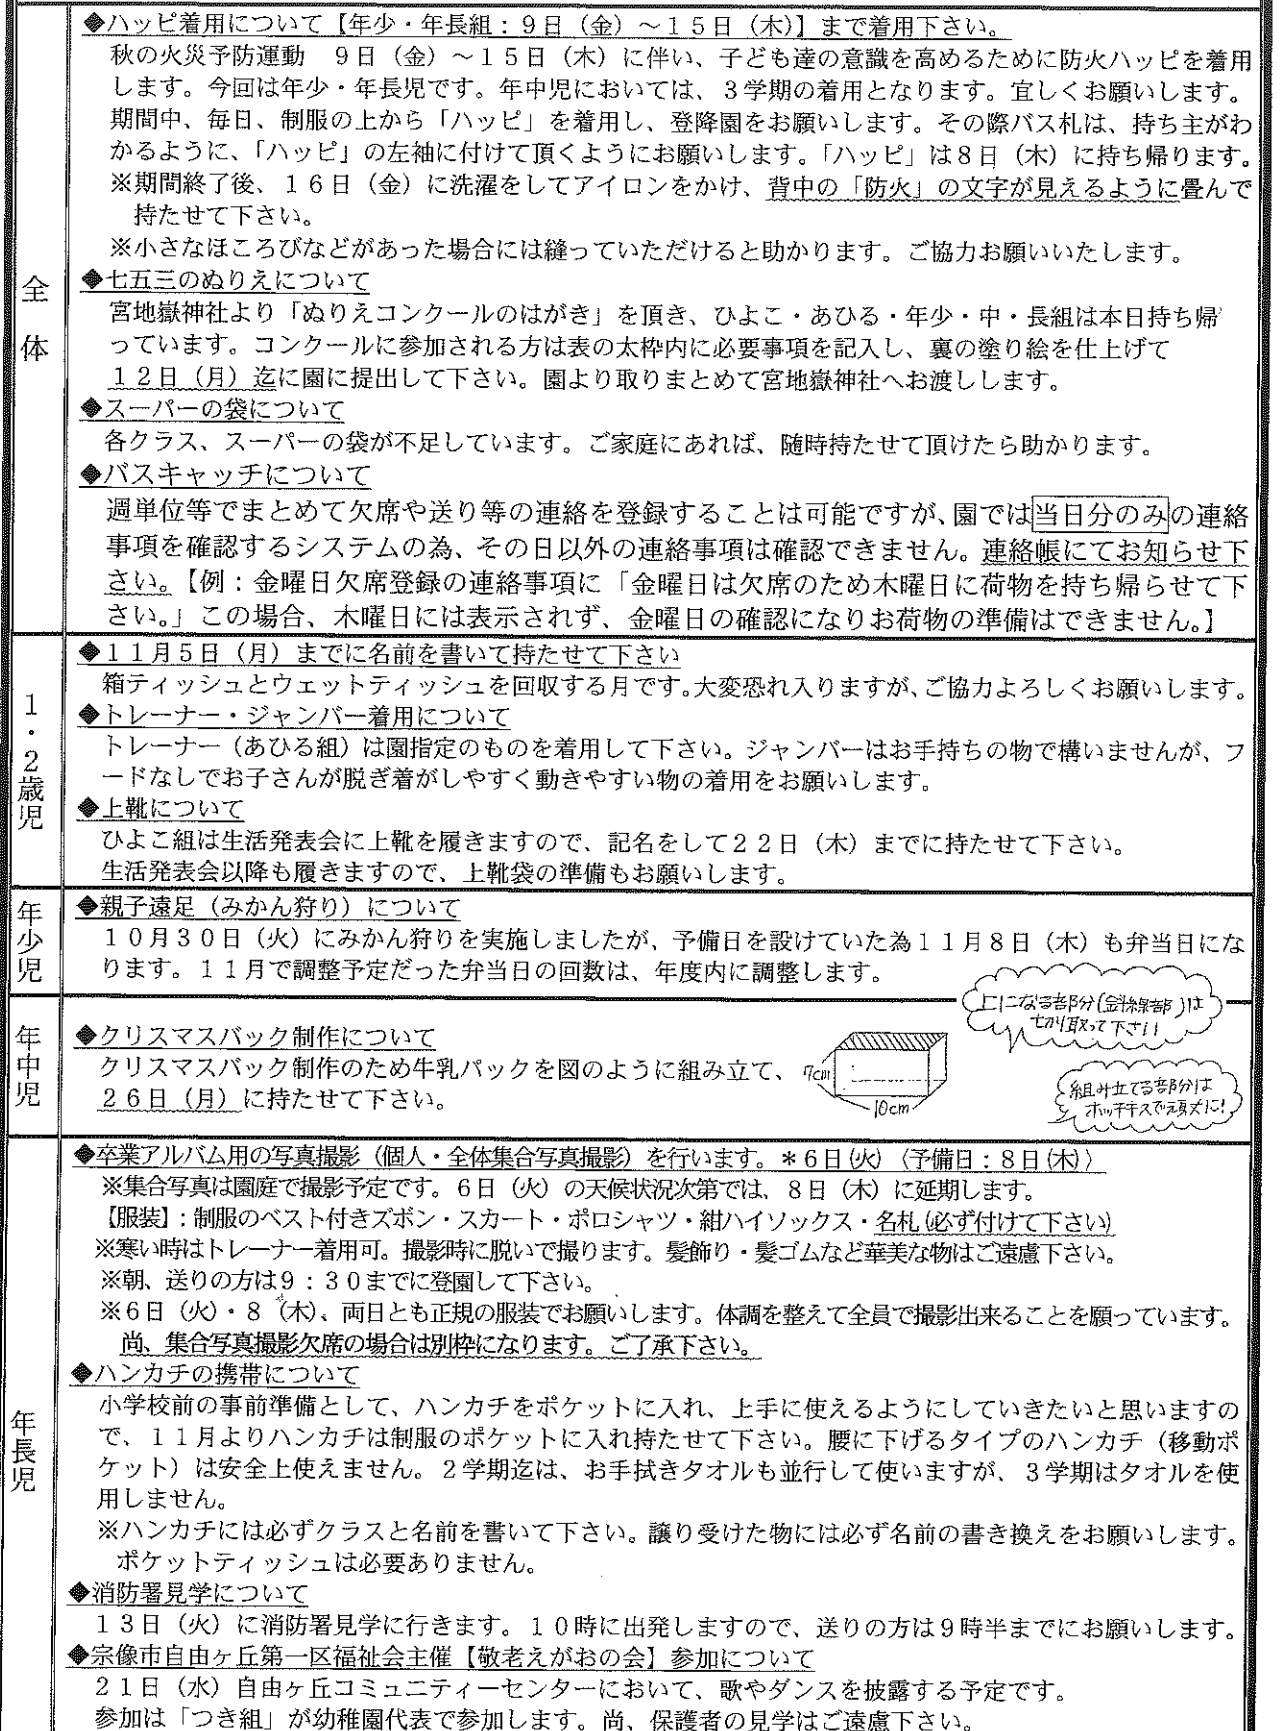 ◆ハッピ着用について【年少・年長組：９日（金）～１５日（木）】まで着用下さい。
秋の火災予防運動　９日（金）～１５日（木）に伴い、子ども達の意識を高めるために防火ハッピを着用
します。今回は年少・年長児です。年中児においては、３学期の着用となります。宜しくお願いします。
期間中、毎日、制服の上から「ハッピ」を着用し、登降園をお願いします。その際バス札は、持ち主がわ
かるように、「ハッピ」の左袖に付けて頂くようにお願いします。「ハッピ」は８日（木）に持ち帰ります。
※期間終了後、１６日（金）に洗濯をしてアイロンをかけ、背中の「防火」の文字が見えるように畳んで
持たせて下さい。
※小さなほころびなどがあった場合には縫っていただけると助かります。ご協力お願いいたします。
全体
◆七五三のぬりえについて
宮地嶽神社より「ぬりえコンクールのはがき」を頂き、ひよこ・あひる・年少・中・長組は本日持ち帰
っています。コンクールに参加される方は表の太枠内に必要事項を記入し、裏の塗り絵を仕上げて
１２日（月）迄に園に提出して下さい。園より取りまとめて宮地嶽神社へお渡しします。
◆スーパーの袋について
各クラス、スーパーの袋が不足しています。ご家庭にあれば、随時持たせて頂けたら助かります。
◆バスキャッチについて
週単位等でまとめて欠席や送り等の連絡を登録することは可能ですが、園では当日分のみの連絡
事項を確認するシステムの為、その日以外の連絡事項は確認できません。連絡帳にてお知らせ下
さい。【例：金曜日欠席登録の連絡事項に「金曜日は欠席のため木曜日に荷物を持ち帰らせて下
さい。」この場合、木曜日には表示されず、金曜日の確認になりお荷物の準備はできません。】
１・２歳児
◆１１月５日（月）までに名前を書いて持たせて下さい
箱ティッシュとウェットティッシュを回収する月です。大変恐れ入りますが、ご協力よろしくお願いします。
◆トレーナー・ジャンバー着用について
トレーナー（あひる組）は園指定のものを着用して下さい。ジャンバーはお手持ちの物で構いませんが、フ
ードなしでお子さんが脱ぎ着がしやすく動きやすい物の着用をお願いします。
◆上靴について
ひよこ組は生活発表会に上靴を履きますので、記名をして２２日（木）までに持たせて下さい。
生活発表会以降も履きますので、上靴袋の準備もお願いします。
年少児
◆親子遠足（みかん狩り）について
１０月３０日（火）にみかん狩りを実施しましたが、予備日を設けていた為１１月８日（木）も弁当日にな
ります。１１月で調整予定だった弁当日の回数は、年度内に調整します。
年中児
◆クリスマスバック制作について
クリスマスバック制作のため牛乳パックを図のように組み立て、
２６日（月）に持たせて下さい。
7cm
10cm
上になる部分(斜線部)は
切り取って下さい
組み立てる部分は
ホッチキスで頑丈に!
年長児
◆卒業アルバム用の写真撮影（個人・全体集合写真撮影）を行います。＊６日(火)（予備日：８日(木)）
※集合写真は園庭で撮影予定です。６日（火）の天候状況次第では、８日（木）に延期します。
【服装】：制服のベスト付きズボン・スカート・ポロシャツ・紺ハイソックス・名札(必ず付けて下さい)
※寒い時はトレーナー着用可。撮影時に脱いで撮ります。髪飾り・髪ゴムなど華美な物はご遠慮下さい。
※朝、送りの方は９：３０までに登園して下さい。
※６日（火）・８（木）、両日とも正規の服装でお願いします。体調を整えて全員で撮影出来ることを願っています。
尚、集合写真撮影欠席の場合は別枠になります。ご了承下さい。
◆ハンカチの携帯について
小学校前の事前準備として、ハンカチをポケットに入れ、上手に使えるようにしていきたいと思いますの
で、１１月よりハンカチは制服のポケットに入れ持たせて下さい。腰に下げるタイプのハンカチ（移動ポ
ケット）は安全上使えません。２学期迄は、お手拭きタオルも並行して使いますが、３学期はタオルを使
用しません。
※ハンカチには必ずクラスと名前を書いて下さい。譲り受けた物には必ず名前の書き換えをお願いします。
ポケットティッシュは必要ありません。
◆消防署見学について
１３日（火）に消防署見学に行きます。１０時に出発しますので、送りの方は９時半までにお願いします。
◆宗像市自由ヶ丘第一区福祉会主催【敬老えがおの会】参加について
２１日（水）自由ヶ丘コミュニティーセンターにおいて、歌やダンスを披露する予定です。
参加は「つき組」が幼稚園代表で参加します。尚、保護者の見学はご遠慮下さい。